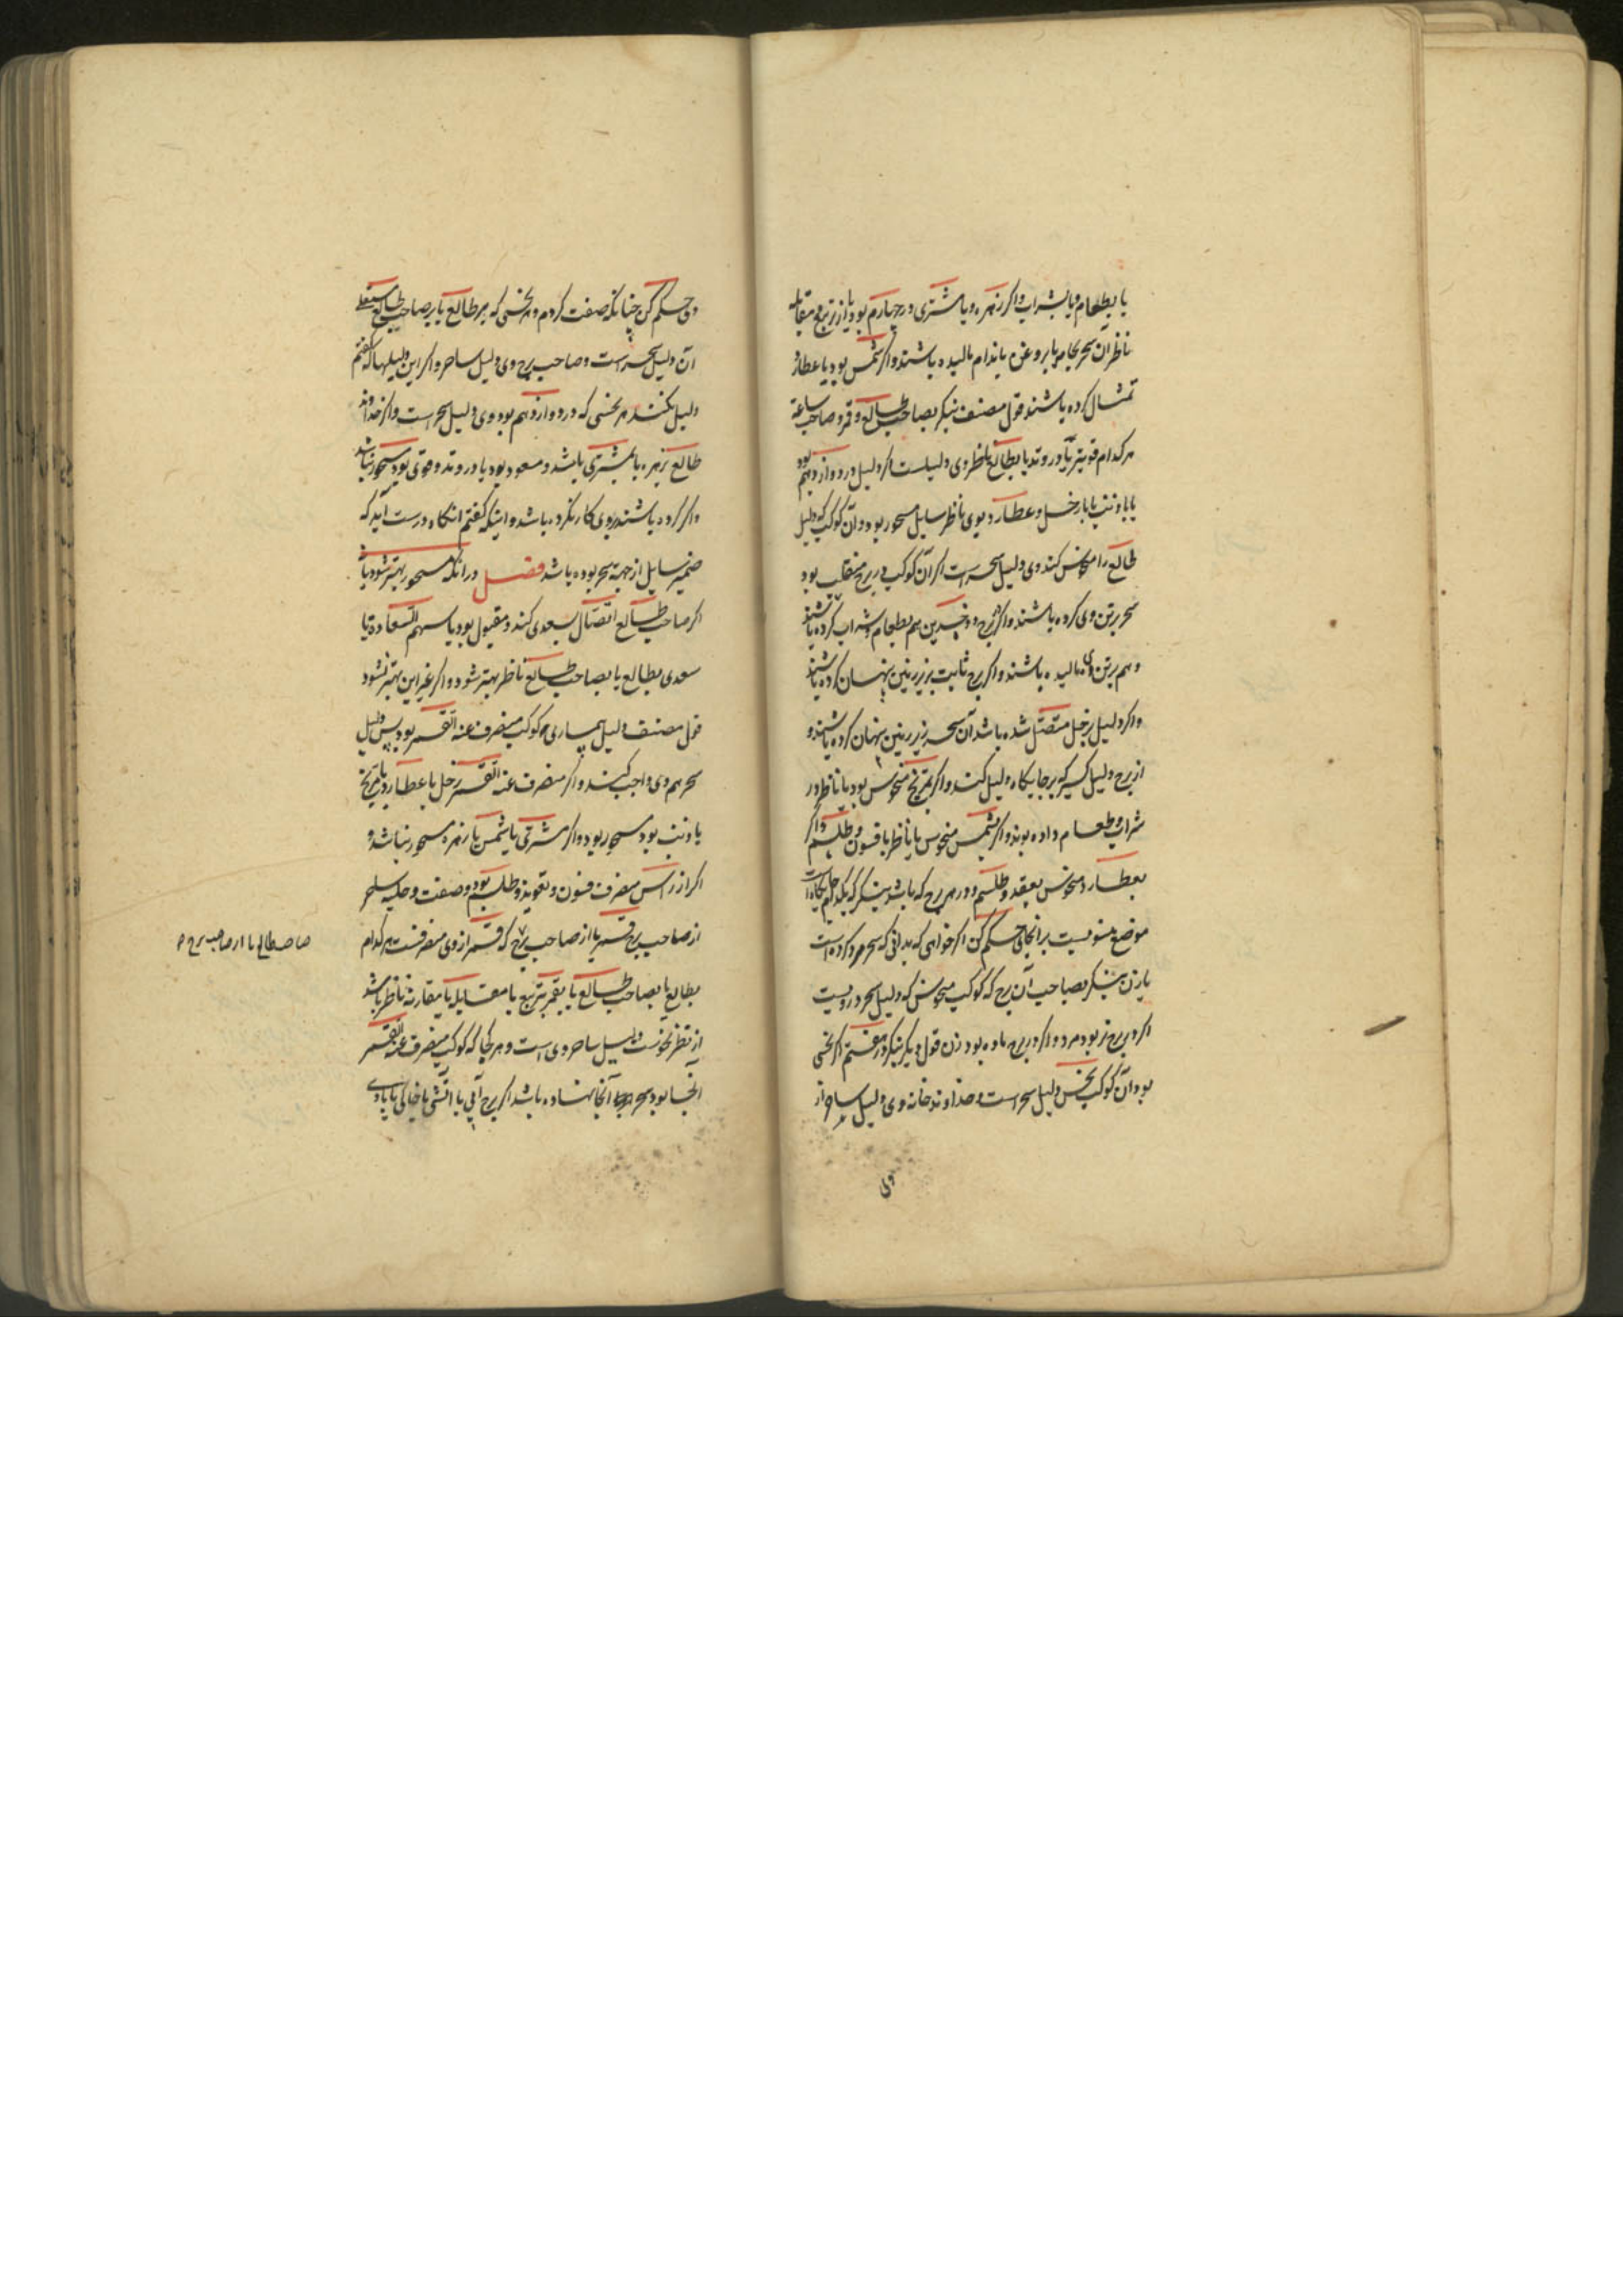 یا بطعام و یا بشراب و اگر زهره و یا مشتری در چهارم بود یا از تربیع و مقابله
ناظر آن سحر بجامه یا بروغن باندام مالیده باشند و اگر شمس بود یا عطارد
تمثال کرده باشند قول مصنف بنگر بصاحب طالع و قمر و صاحب ساعة
هر کدام قویتر یا در وتد یا بطالع ناظر وی دلیلست اگر دلیل در دوازدهم بود
یا با ذنب یا با زحل و عطارد بوی ناظر سایل مسحور بود و آن کوکب که دلیل
طالع را منحوس کند وی دلیل سحر است اگر آن کوکب در برج منقلب بود
سحر بر تن وی کرده باشند و اگر برج ذو جسدین هم بطعام و شراب کرده باشند
و هم بر تن وی مالیده باشند و اگر برج ثابت بزیر زمین پنهان کرده باشند
و اگر دلیل بزحل متصل شده باشد آن سحر بزیر زمین پنهان کرده باشند و
از برج دلیل گیر که بر جایگاه دلیل کند و اگر بمریخ منحوس بود یا ناظر در
شراب و طعام داده بوند و اگر بشمس منحوس یا ناظر بافسون و طلسم و اگر
بعطارد منحوس بعقد و طلسم و در هر برج که باشد بنگر که بکدام جایگاه است
موضع منسوبست بر انجای حکم کن اگر خواهی که بدانی که سحر مرد کرده است
یا زن بنگر بصاحب آن برج که کوکب منحوس که دلیل سحر درویست
اگر در برج نر بود مرد و اگر در برج ماده بود زن قول دیگر بنگر در هفتم اگر نحسی
بود آن کوکب نحس دلیل سحر است و خداوند خانه وی دلیل ساحر از
وی
وی حکم کن چنانکه صفت کردم و هر نحسی که بر طالع یا بر صاحب طالع مستعلی
آن دلیل سحر است و صاحب برج وی دلیل ساحر و اگر این دلیلها که گفتم
دلیل نکنند هر نحسی که در دوازدهم بود وی دلیل سحر است و اگر خداوند
طالع زهره یا مشتری باشد و مسعود بود یا در وتد و قوی بود مسحور نباشد
و اگر کرده باشند بروی کار نکرده باشد و اینکه گفتم انگاه درست آید که
ضمیر سایل از جهة سحر بوده باشد فصل در انکه مسحور بهتر شود یا نه
اگر صاحب طالع اتصال بسعدی کند و مقبول بود یا سهم السعادة یا
سعدی بطالع یا بصاحب طالع ناظر بهتر شود و اگر غیر این بهتر نشود
قول مصنف دلیل بیماری کوکب منصرف عنه القمر بود پس دلیل
سحر هم وی واجب کند و اگر منصرف عنه القمر زحل یا عطارد یا مریخ
یا ذنب بود مسحور بود و اگر مشتری یا شمس یا زهره مسحور نباشد و
اگر از راس منصرف فسون و تعویذ و طلسم بود و صفت و حلیه ساحر
از صاحب برج قمر یا از صاحب برج ۷ که قمر از وی منصرفست هر کدام
بطالع یا بصاحب طالع یا بقمر بتربیع یا مقابله یا مقارنه ناظر باشد
از نظر نحوست دلیل ساحر وی است و هر کجا که کوکب منصرف عنه القمر
آنجا بود سحر آنجا نهاده باشد اگر برج آبی یا آتشی یا خاکی یا بادی
صاحب طالع یا از صاحب برج